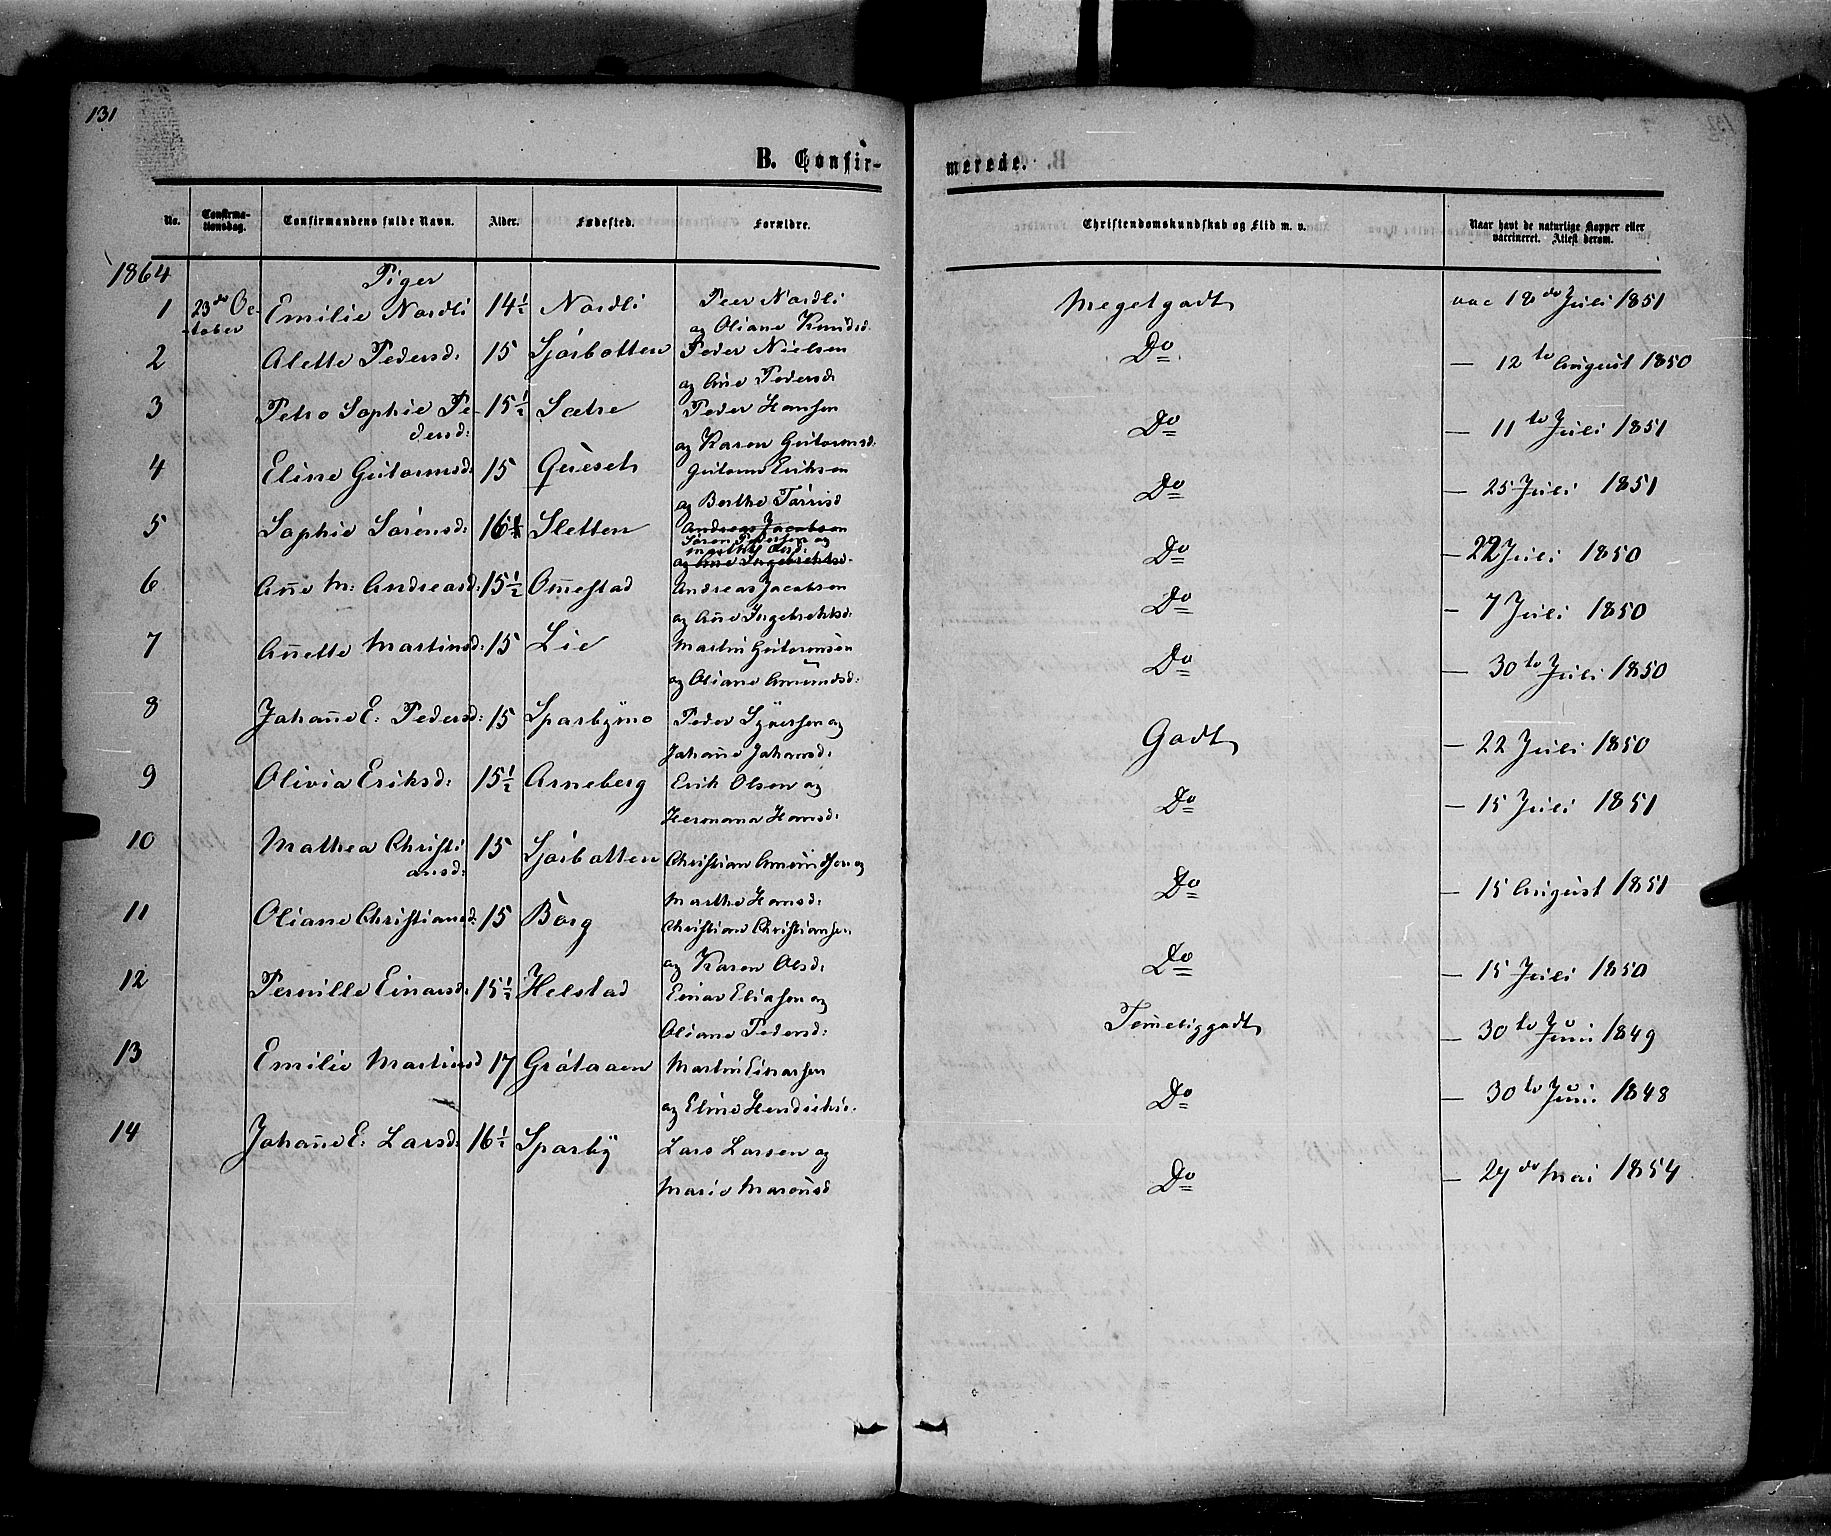 131
B. Confirmerede.
No. Confirmationsdag. Confirmandens fulde Navn. Alder. Fødested. Forældre. Christendomskundskab og Flid m. v. Naar havt de naturlige Kopper eller vaccineret. Attest derom.
1864 Piger
1 23de October Emilie Nordli 14½ Nordli Peer Nordli og Oliane Knudsd. Megetgodt vac 18de Juli 1851
2 Alette Pedersd: 15 Sjørbotten Peder Nielsen og Ane Pedersd: Do — 12te August 1850
3 Petro Sophie Pedersd: 15½ Sætre Peder Hansen og Karen Gutormsd: Do — 11te Juli 1851
4 Eline Gutormsd: 15 Gutorm Eriksen og Berthe Do — 25 Juli 1851
5 Sophie Sørensd: 16½ Sletten Andreas Jacobsen Søren Pedersen og Marthe Olsd: og Ane Ingebrektsd: Do — 22 Juli 1850
6 Añe M: Andreasd: 15½ Oñestad Andreas Jacobsen og Añe Ingebrektsd: Do — 7 Juli 1850
7 Añette Martinsd: 15 Lie Martin Gutormsen og Oliane Amundsd: Do — 30te Juli 1850
8 Johañe E: Pedersd: 15 Sparbymo Peder Syversen og Johañe Johansd: Godt — 22 Juli 1850
9 Olivia Eriksd: 15½ Arneberg Erik Olsen og Hermana Hansd: Do — 15 Juli 1851
10 Mathea Christiansd: 15 Sjørbotten Christian Amundsen og Marthe Hansd: Do — 15 August 1851
11 Oliane Christiansd: 15 Børg Christian Christiansen og Karen Olsd: Do — 15 Juli 1850
12 Pernille Einarsd: 15½ Helstad Einar Eliasen og Oliane Pedersd: Temeliggodt — 30te Juni 1849
13 Emilie Martinsd 17 Grøtaaen Martin Einarsen og Eline Hendriks: Do — 30te Juni 1848
14 Johañe E: Larsd: 16½ Sparby Lars Larsen og Marie Do — 27de Mai 1854